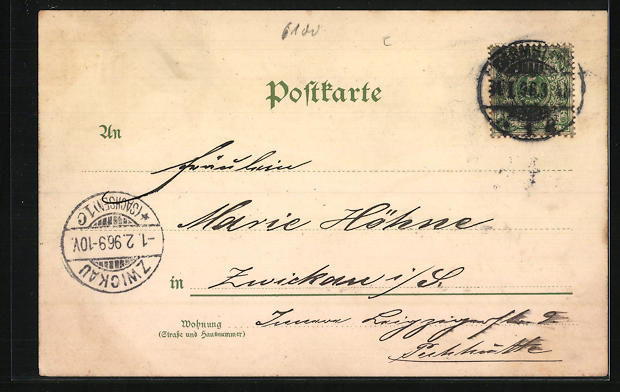 6100
Postkarte
An
Fräulein
Marie Höhne
in Zwickau i/S.
Wohnung
(Straße und Hausnummer)
Innere Leipzigerstr.
ZWICKAU
-1.2.96 9-10V.
*(SACHSEN)1c